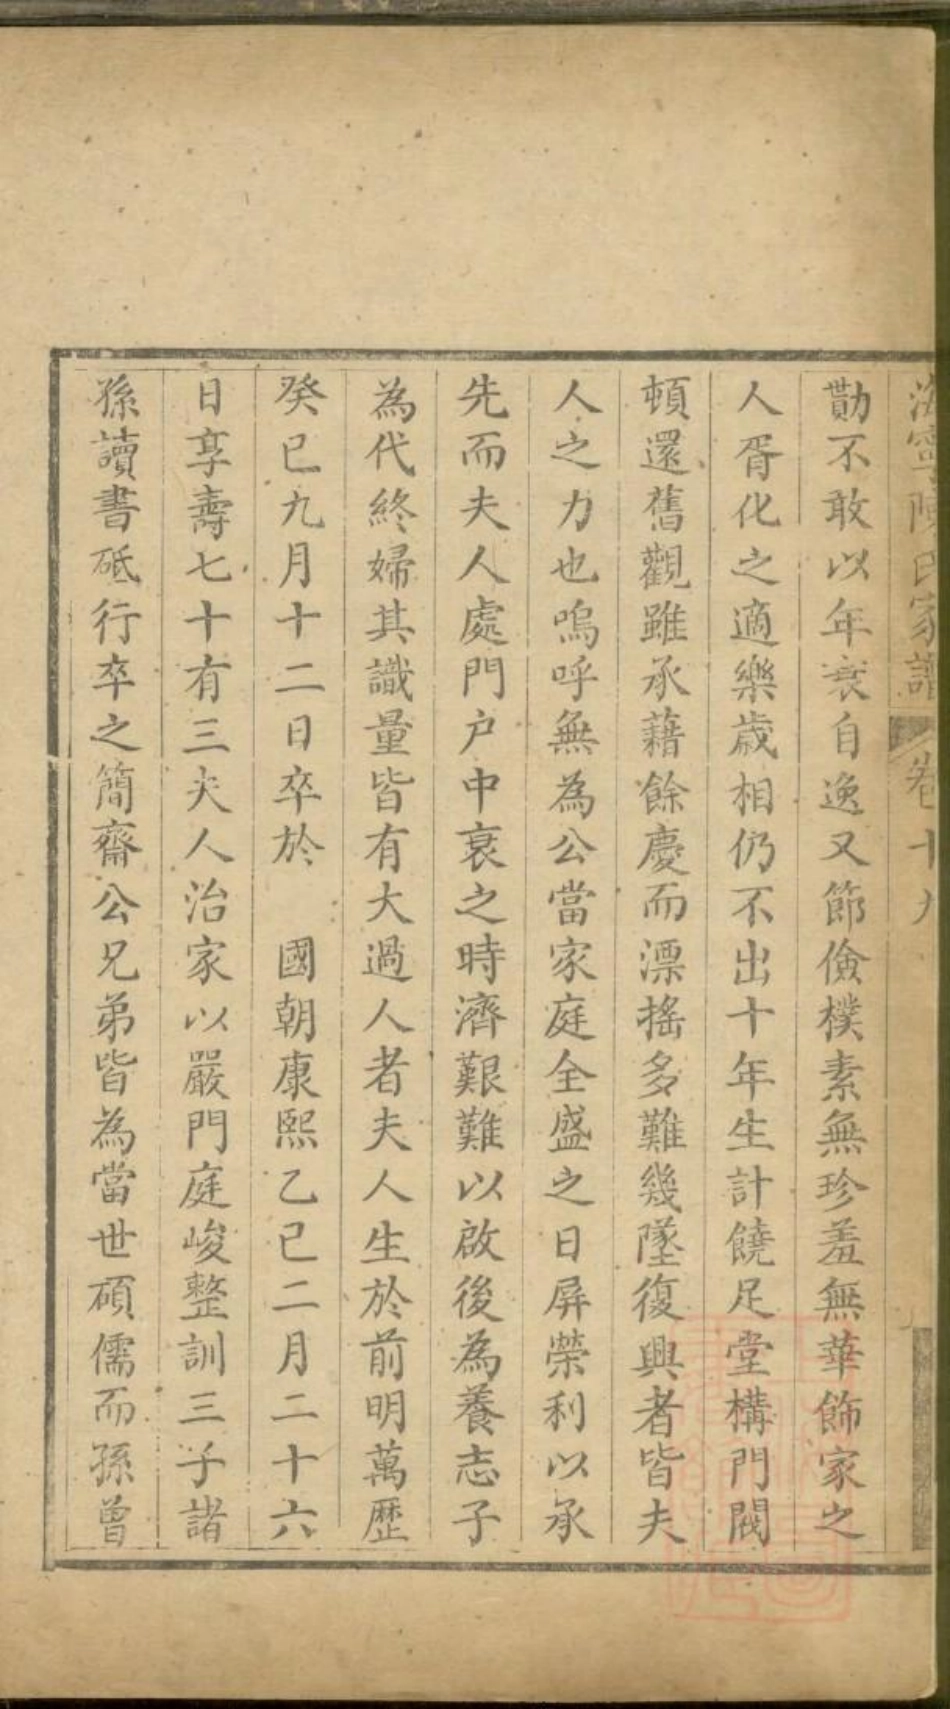 海寧陳氏家譜 卷十九
勩不敢以年衰自逸又節儉樸素無珍羞無華飾家之
人胥化之適樂歲相仍不出十年生計饒足堂構門閥
頓還舊觀雖承藉餘慶而漂搖多難幾墜復興者皆夫
人之力也嗚呼無為公當家庭全盛之日屏榮利以承
先而夫人處門户中衰之時濟艱難以啟後為養志子
為代終婦其識量皆有大過人者夫人生於前明萬歷
癸巳九月十二日卒於　國朝康熙乙巳二月二十六
日享壽七十有三夫人治家以嚴門庭峻整訓三子諸
孫讀書砥行卒之簡齋公兄弟皆為當世碩儒而孫曾